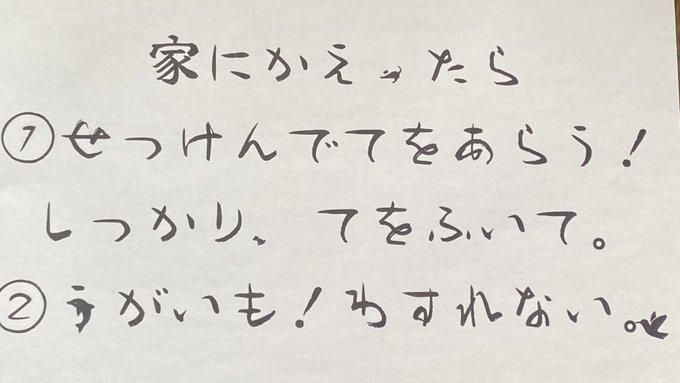 家にかえったら
①せっけんでてをあらう！
しっかり、てをふいて。
②うがいも！わすれない。